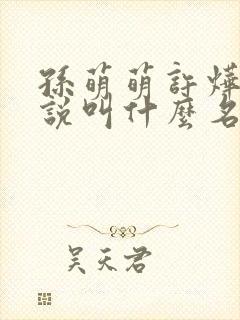 孫萌萌許燁
說叫什麼名
吴天君